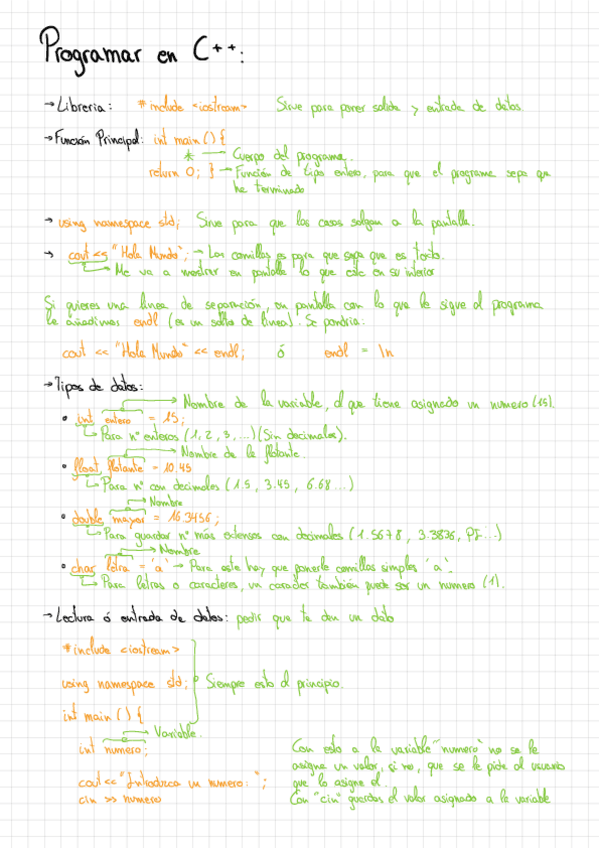 Programar en C++:
→ Libreria: #include <iostream> Sirve para poner salida y entrada de datos
→ Función Principal: int main () {
* — Cuerpo del programa.
return 0; } → Función de tipo entero, para que el programa sepa que
ha terminado
→ using namespace std; Sirve para que las cosas salgan a la pantalla.
→ cout << "Hola Mundo"; → Las comillas es para que sepa que es texto.
Me va a mostrar en pantalla lo que este en su interior
Si quieres una linea de separación, en pantalla con lo que le sigue al programa
le añadimos endl (es un salto de linea). Se pondria:
cout << "Hola Mundo" << endl; ó endl = \n
→ Tipos de datos:
Nombre de la variable, al que tiene asignado un numero (15).
• int entero = 15;
Para nº enteros (1, 2, 3, ...) (Sin decimales).
Nombre de la flotante.
• float flotante = 10.45
Para nº con decimales (1.5, 3.45, 6.68...)
Nombre
• double mayor = 16.3456;
Para guardar nº más extensos con decimales (1.5678, 3.3876, PI...)
Nombre
• char letra = 'a' → Para este hay que ponerle comillas simples 'a'.
Para letras o caracteres, un caracter también puede ser un numero (1).
→ Lectura ó entrada de datos: pedir que te den un dato
#include <iostream>
using namespace std; Siempre esto al principio.
int main () {
Variable.
int numero; Con esto a la variable "numero" no se le
asigna un valor, si no, que se le pide al usuario
cout << "Introduzca un numero: "; que lo asigne el.
cin >> numero Con "cin" guardas el valor asignado a la variable